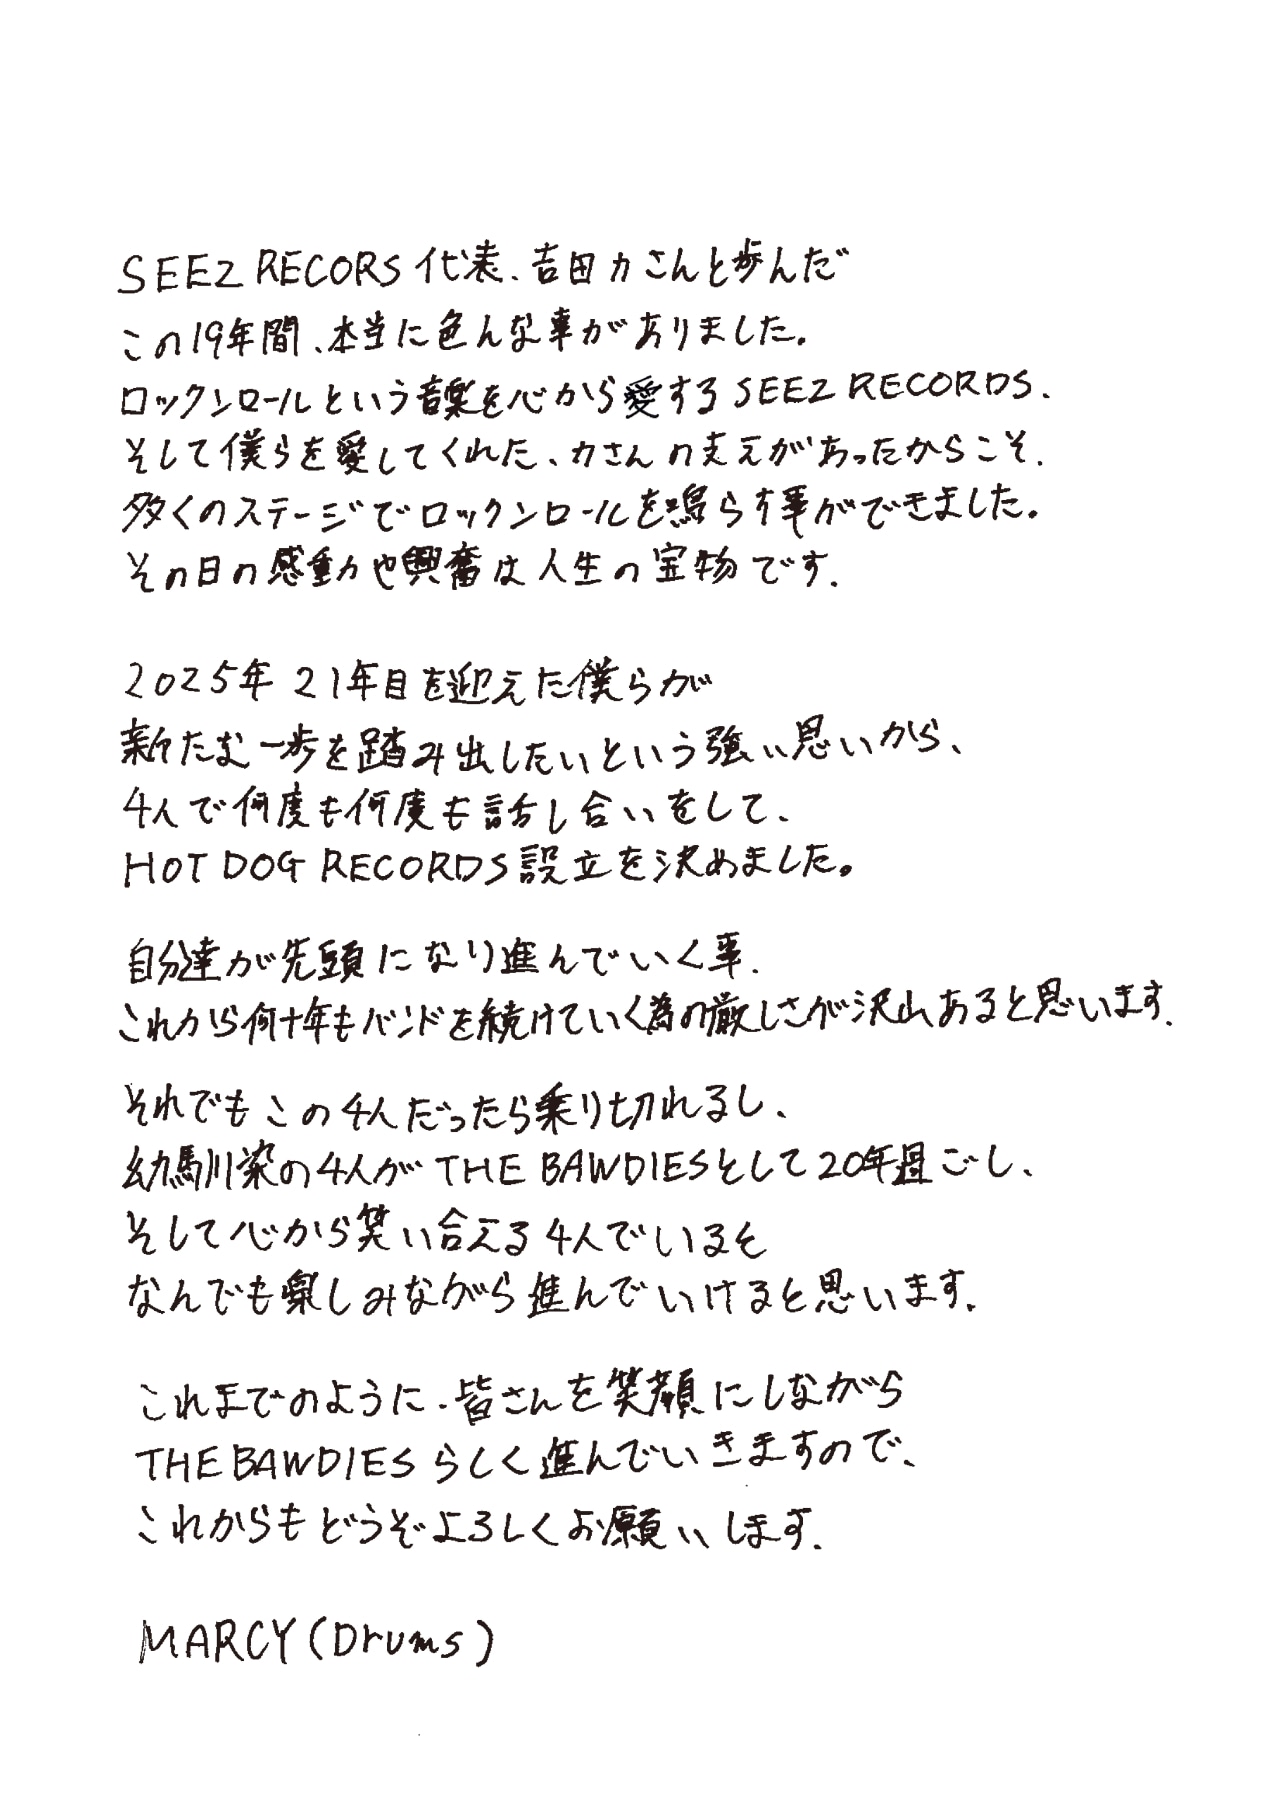 SEEZ RECORS代表、吉田力さんと歩んだ
この19年間、本当に色んな事がありました。
ロックンロールという音楽を心から愛するSEEZ RECORDS.
そして僕らを愛してくれた、力さんの支えがあったからこそ.
多くのステージでロックンロールを鳴らす事ができました。
その日の感動や興奮は人生の宝物です.
2025年 21年目を迎えた僕らが
新たむ一歩を踏み出したいという強い思いから、
4人で何度も何度も話し合いをして、
HOT DOG RECORDS設立を決めました。
自分達が先頭になり進んでいく事.
これから何十年もバンドを続けていく為の厳しさが沢山あると思います.
それでもこの4人だったら乗り切れるし、
幼馬川染の4人がTHE BAWDIESとして20年過ごし、
そして心から笑い合える4人でいるを
なんでも楽しみながら進んでいけると思います.
これまでのように.皆さんを笑顔にしながら
THE BAWDIESらしく進んでいきますので、
これからもどうぞよろしくお願いします.
MARCY(Drums)